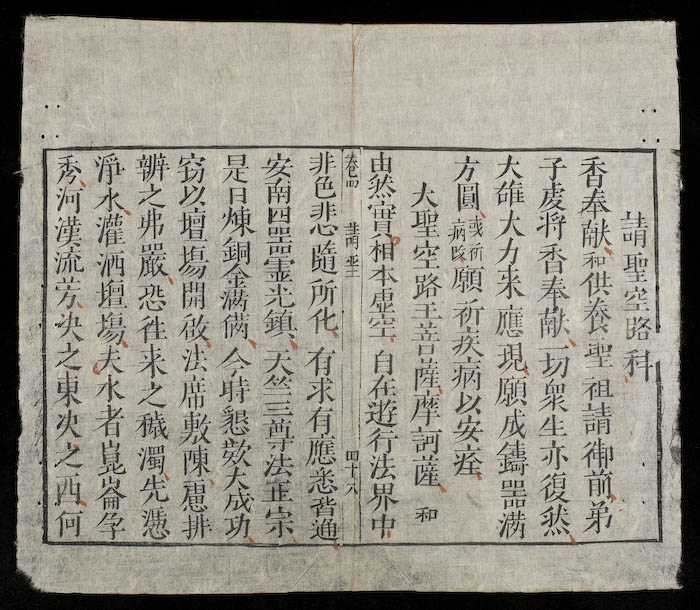 請聖空路科
香奉献和供養聖祖請御前弟
子虔將香奉献一切衆生亦復然
大雄大力来應現願成鑄噐滿
方圓或祈病願祈疾病以安痊
大聖空路王菩薩摩訶薩 和
由然實相本虛空自在遊行法界中
卷四 請聖 四十八
非色非悲隨所化有求有應悉皆通
安南四噐霊光鎮天竺三尊法正宗
是日煉銅金滿今時懇効大成功
窃以壇塲開啟法席敷陳慮排
辦之弗嚴恐徃来之穢濁先慿
淨水灌洒壇塲夫水者崑崙孕
秀河漢流芳决之東决之西何